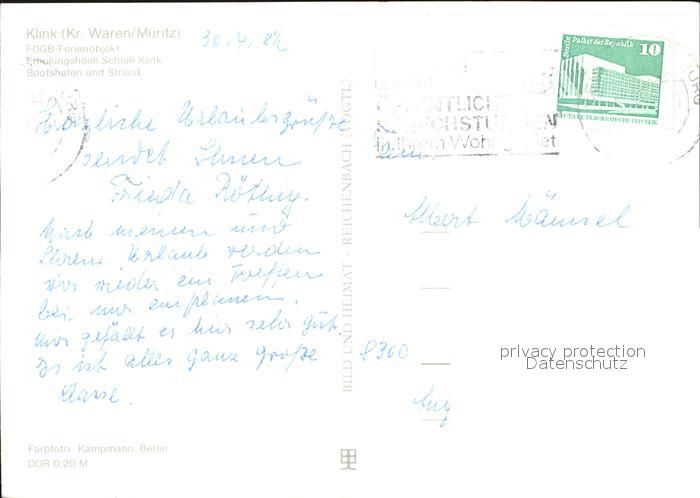 Klink (Kr. Waren/Müritz)
FDGB-Ferienobjekt
Erholungsheim Schloß Klink
Bootshafen und Strand
30.4.82
Herzliche Urlaubsgrüße
sendet Ihnen
Frieda Röthig.
Nach meinem und
Ihrem Urlaub werden
wir wieder ein Treffen
bei mir einplanen.
Mir gefällt es hier sehr gut.
Es ist alles ganz große
Klasse.
Farbfoto: Kampmann, Berlin
DDR 0:20 M
BILD UND HEIMAT · REICHENBACH (VOGTL)
Berlin, Palast der Republik
10
DEUTSCHE DEMOKRATISCHE REPUBLIK
unsere
ÖFFENTLICHEN
SPRECHSTUNDEN
in Ihrem Wohngebiet
Albert Mäusel
8300
privacy protection
Datenschutz